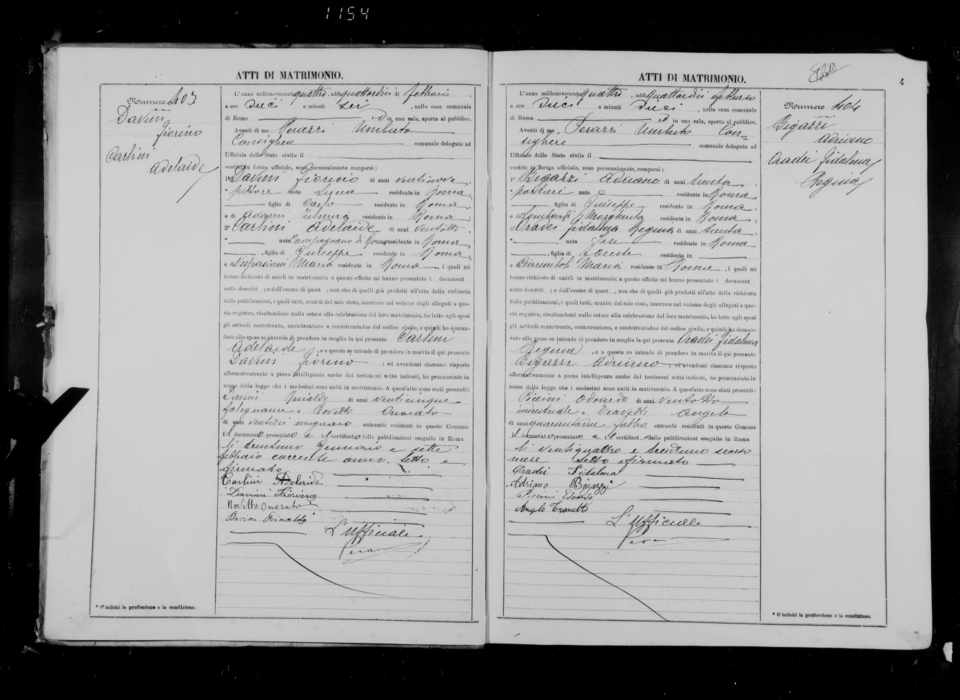 1154
ATTI DI MATRIMONIO.
Numero 403
Davini
Fiorino
Carlini
Adelaide
L'anno millenovecentoquattro, addì quattordici di febbraio
a ore dieci e minuti sei, nella casa comunale
di Roma in una sala, aperta al pubblico.
Avanti di me Perazzi Umberto
Consigliere comunale delegato ad
Uffiziale dello Stato civile il
vestito in forma uffiziale, sono personalmente comparsi:
1° Davini Fiorino di anni ventinove
* pittore nato residente in Roma
figlio di residente in Roma
e di residente in Roma
2° Carlini Adelaide di anni ventotto
* nata Campagnano di Roma residente in Roma
figlia di Giuseppe residente in Roma
e Maria residente in Roma, i quali mi
hanno richiesto di unirli in matrimonio; a questo effetto mi hanno presentato i document
sotto descritt; e dall'esame di quest, non che di quelli già prodotti all'atto della richiesta
delle pubblicazioni, i quali tutti, muniti del mio visto, inserisco nel volume degli allegati a que-
sto registro, risultandomi nulla ostare alla celebrazione del loro matrimonio, ho letto agli sposi
gli articoli centotrenta, centotrentuno e centotrentadue del codice civile, e quindi ho doman-
dato allo sposo se intende di prendere in moglie la qui presente Carlini
Adelaide, e a questa se intende di prendere in marito il qui presente
Davini Fiorino; ed avendomi ciascuno risposto
affermativamente a piena intelligenza anche dei testimoni sotto indicati, ho pronunciato in
nome della legge che i medesimi sono uniti in matrimonio. A quest'atto sono stati presenti:
Davini Rinaldo di anni venticinque
falegname e Rovetto Onorato
di anni ventisei mugnaio entrambi residenti in questo Comune
I documenti presentati e il certificato delle pubblicazioni eseguite in Roma
li trentuno Gennaio e sette
febbraio corrente anno. Letto e
firmato
Carlini Adelaide
Davini Fiorino
Rovetto Onorato
Davini Rinaldo
L'Ufficiale
* S'indichi la professione o la condizione.
ATTI DI MATRIMONIO.
Numero 404
Bigazzi
Adriano
Oradei Fidalma
Regina
L'anno millenovecentoquattro, addì quattordici febbraio
a ore dieci e minuti dieci, nella casa comunale
di Roma in una sala, aperta al pubblico.
Avanti di me Perazzi Umberto Con-
sigliere comunale delegato ad
Uffiziale dello Stato civile il
vestito in forma uffiziale, sono personalmente comparsi:
1° Bigazzi Adriano di anni trenta
* nato a residente in Roma
figlio di Giuseppe residente in Roma
e Lombardi Margherita residente in Roma;
2° Oradei Fidalma Regina di anni trenta
* nata residente in Roma
figlia di residente in
e Maria residente in Roma, i quali mi
hanno richiesto di unirli in matrimonio; a questo effetto mi hanno presentato i document
sotto descritt; e dall'esame di quest, non che di quelli già prodotti all'atto della richiesta
delle pubblicazioni, i quali tutti, muniti del mio visto, inserisco nel volume degli allegati a que-
sto registro, risultandomi nulla ostare alla celebrazione del loro matrimonio, ho letto agli sposi
gli articoli centotrenta, centotrentuno e centotrentadue del codice civile, e quindi ho doman-
dato allo sposo se intende di prendere in moglie la qui presente Oradei Fidalma
Regina, e a questa se intende di prendere in marito il qui presente
Bigazzi Adriano; ed avendomi ciascuno risposto
affermativamente a piena intelligenza anche dei testimoni sotto indicati, ho pronunciato in
nome della legge che i medesimi sono uniti in matrimonio. A quest'atto sono stati presenti:
Piccini Edoardo di anni ventotto
industriale e Travetti Angelo
di anni quarantuno fabbro entrambi residenti in questo Comune
I documenti presentati e il certificato delle pubblicazioni eseguite in Roma
li ventiquattro e trentuno scorso
mese letto e firmato
Oradei Fidalma
Adriano Bigazzi
Piccini Edoardo
Angelo Travetti
L'Ufficiale
* S'indichi la professione o la condizione.